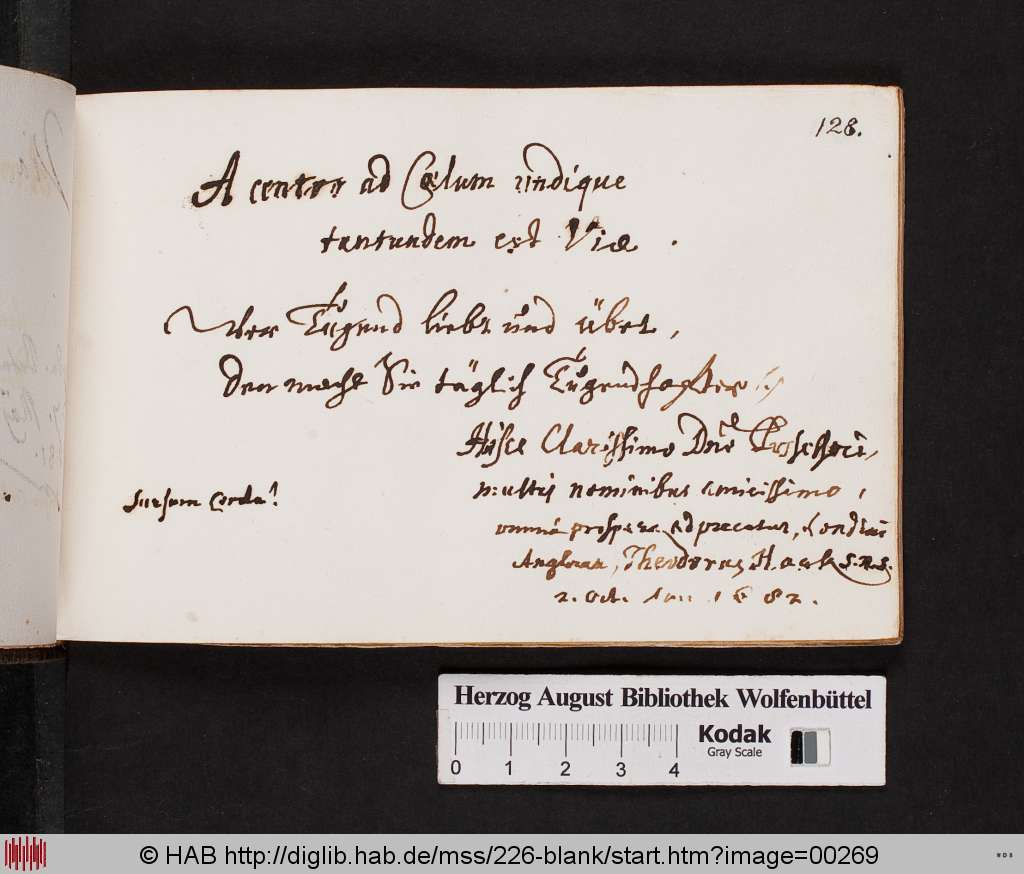 128.
A centro ad Cœlum undique
tantundem est Viæ.
Wer Tugend liebt und übet,
Den macht Sie täglich Tugendhafter
Hisce Clarissimo Dno
multis nominibus amicissimo,
Sursum Corda!
omnia prospera adprecatur, Londini
Anglorum, Theodorus Haak S.R.S.
2. Oct. Ann. 1682.
Herzog August Bibliothek Wolfenbüttel
Kodak
Gray Scale
0 1 2 3 4
© HAB http://diglib.hab.de/mss/226-blank/start.htm?image=00269